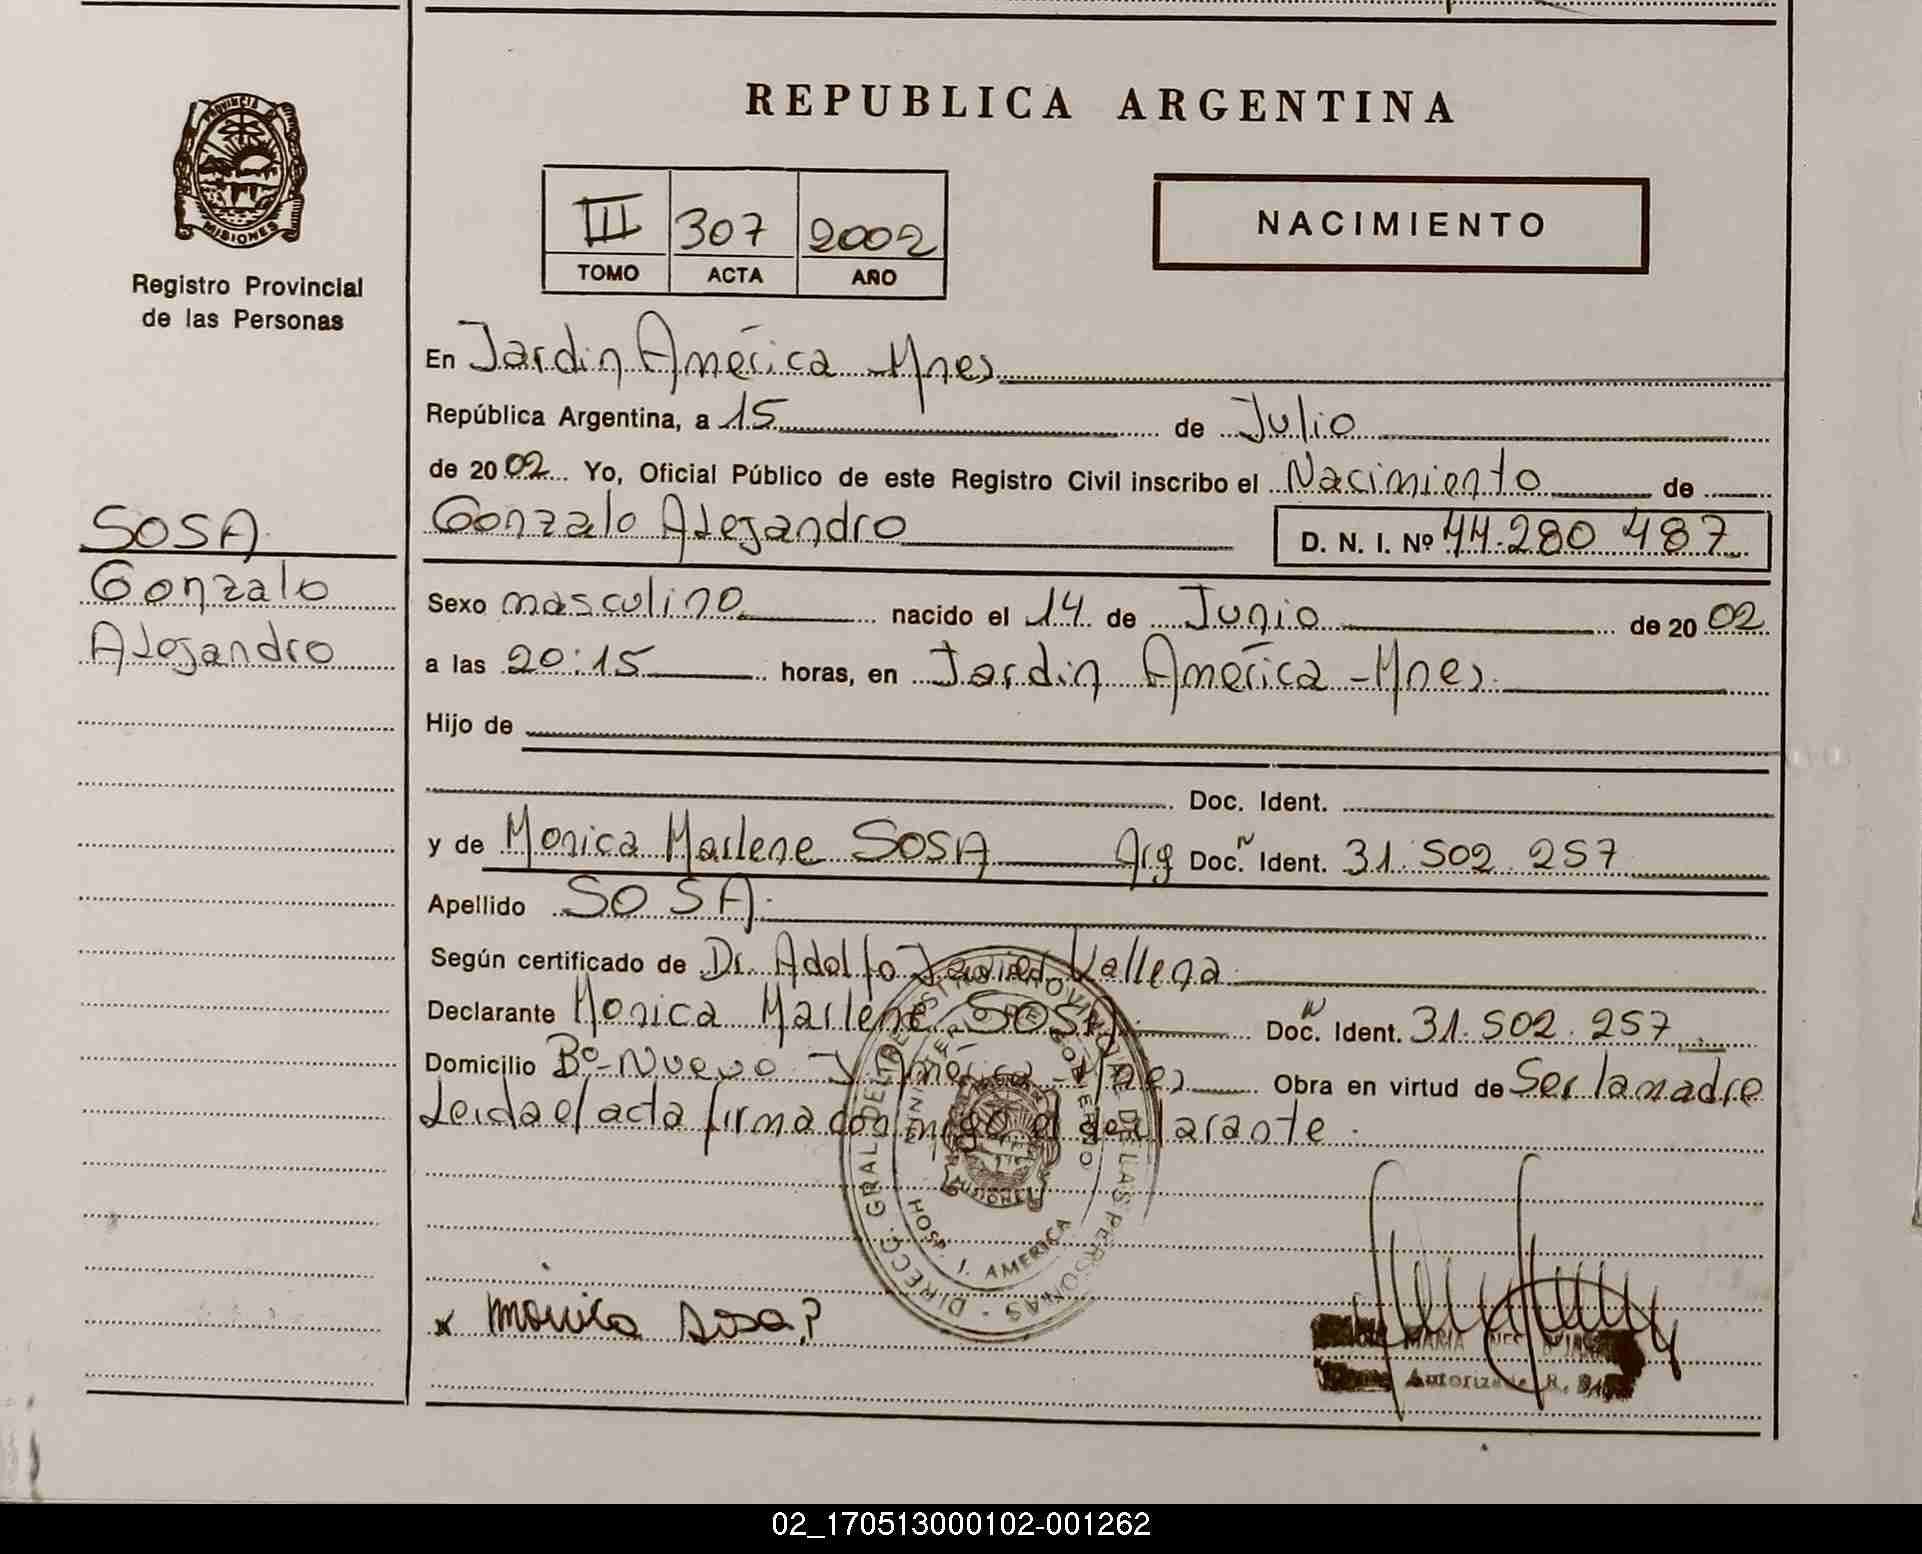 REPUBLICA ARGENTINA
PROVINCIA
MISIONES
Registro Provincial
de las Personas
III 307 2002
TOMO ACTA AÑO
NACIMIENTO
SOSA
Gonzalo
Alejandro
En Jardin América - Mnes
República Argentina, a 15 de Julio
de 2002 Yo, Oficial Público de este Registro Civil inscribo el Nacimiento de
Gonzalo Alejandro D. N. I. Nº 44.280 487
Sexo masculino nacido el 14 de Junio de 2002
a las 20:15 horas, en Jardin América - Mnes.
Hijo de
Doc. Ident.
y de Monica Marlene SOSA Arg Doc. N Ident. 31.502.257
Apellido SOSA.
Según certificado de Dr. Adolfo Javier Vallena
Declarante Monica Marlene SOSA Doc. N Ident. 31.502.257
Domicilio Bº-Nuevo J. América - Mnes Obra en virtud de Ser la madre
Leida el acta firma conmigo el declarante.
DIRECC. GRAL. DEL REGISTRO PROVINCIAL DE LAS PERSONAS -
MINISTERIO DE GOBIERNO
MISIONES
HOSP. J. AMERICA
x Monica Sosa
MARIA
Autorizada R.
02_170513000102-001262